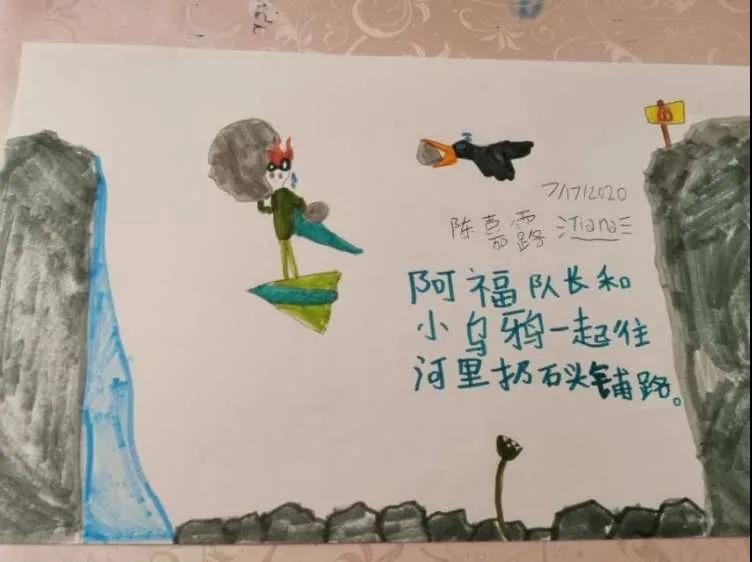 7/17/2020
陈嘉露 Tiana
阿福队长和
小乌鸦一起往
河里扔石头铺路。